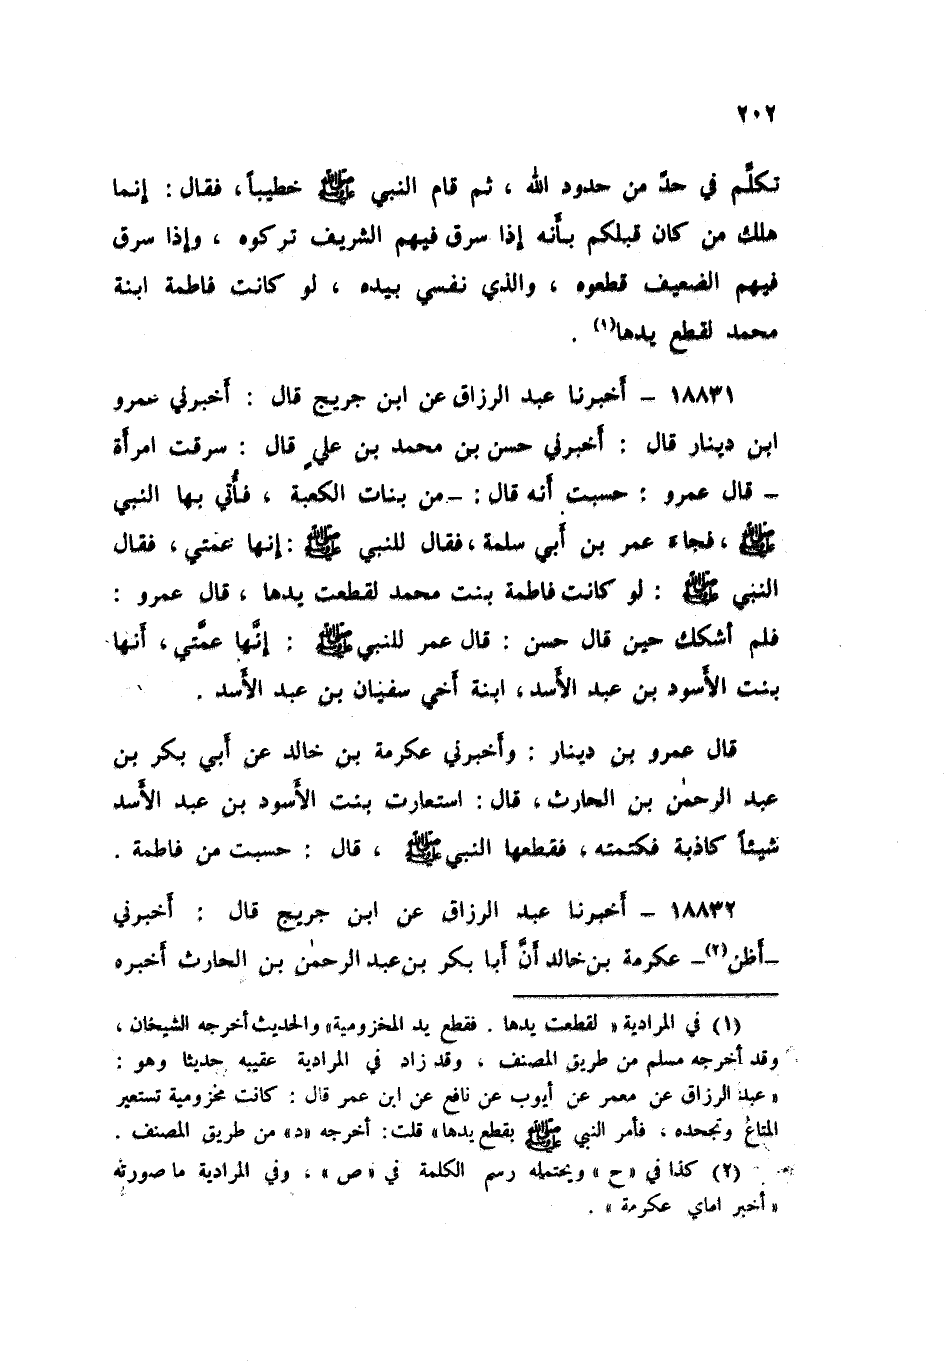 ٢٠٢
تكلَّم في حدّ من حدود الله ، ثم قام النبي ﷺ خطيباً ، فقال : إنما
هلك من كان قبلكم بأنه إذا سرق فيهم الشريف تركوه ، وإذا سرق
فيهم الضعيف قطعوه ، والذي نفسي بيده ، لو كانت فاطمة ابنة
محمد لقطع يدها(١) .
١٨٨٣١ – أخبرنا عبد الرزاق عن ابن جريج قال : أخبرني عمرو
ابن دينار قال : أخبرني حسن بن محمد بن علي قال : سرقت امرأة
– قال عمرو : حسبت أنه قال : – من بنات الكعبة ، فأُتي بها النبي
ﷺ ، فجاء عمر بن أبي سلمة ، فقال للنبي ﷺ : إنها عمتي ، فقال
النبي ﷺ : لو كانت فاطمة بنت محمد لقطعت يدها ، قال عمرو :
فلم أشكك حين قال حسن : قال عمر للنبي ﷺ : إنَّها عمَّتي ، أنها
بنت الأسود بن عبد الأسد ، ابنة أخي سفيان بن عبد الأسد .
قال عمرو بن دينار : وأخبرني عكرمة بن خالد عن أبي بكر بن
عبد الرحمٰن بن الحارث ، قال : استعارت بنت الأسود بن عبد الأسد
شيئاً كاذبة فكتمته ، فقطعها النبي ﷺ ، قال : حسبت من فاطمة .
١٨٨٣٢ – أخبرنا عبد الرزاق عن ابن جريج قال : أخبرني
– أظن(٢) – عكرمة بن خالد أنَّ أبا بكر بن عبد الرحمٰن بن الحارث أخبره
(١) في المرادية « لقطعت يدها . فقطع يد المخزومية» والحديث أخرجه الشيخان ،
وقد أخرجه مسلم من طريق المصنف ، وقد زاد في المرادية عقيبه حديثا وهو :
« عبد الرزاق عن معمر عن أيوب عن نافع عن ابن عمر قال : كانت مخزومية تستعير
المتاع وتجحده ، فأمر النبي ﷺ بقطع يدها» قلت : أخرجه «د» من طريق المصنف .
(٢) كذا في « ح » ويحتمله رسم الكلمة في « ص » ، وفي المرادية ما صورته
« أخبر اماي عكرمة » .